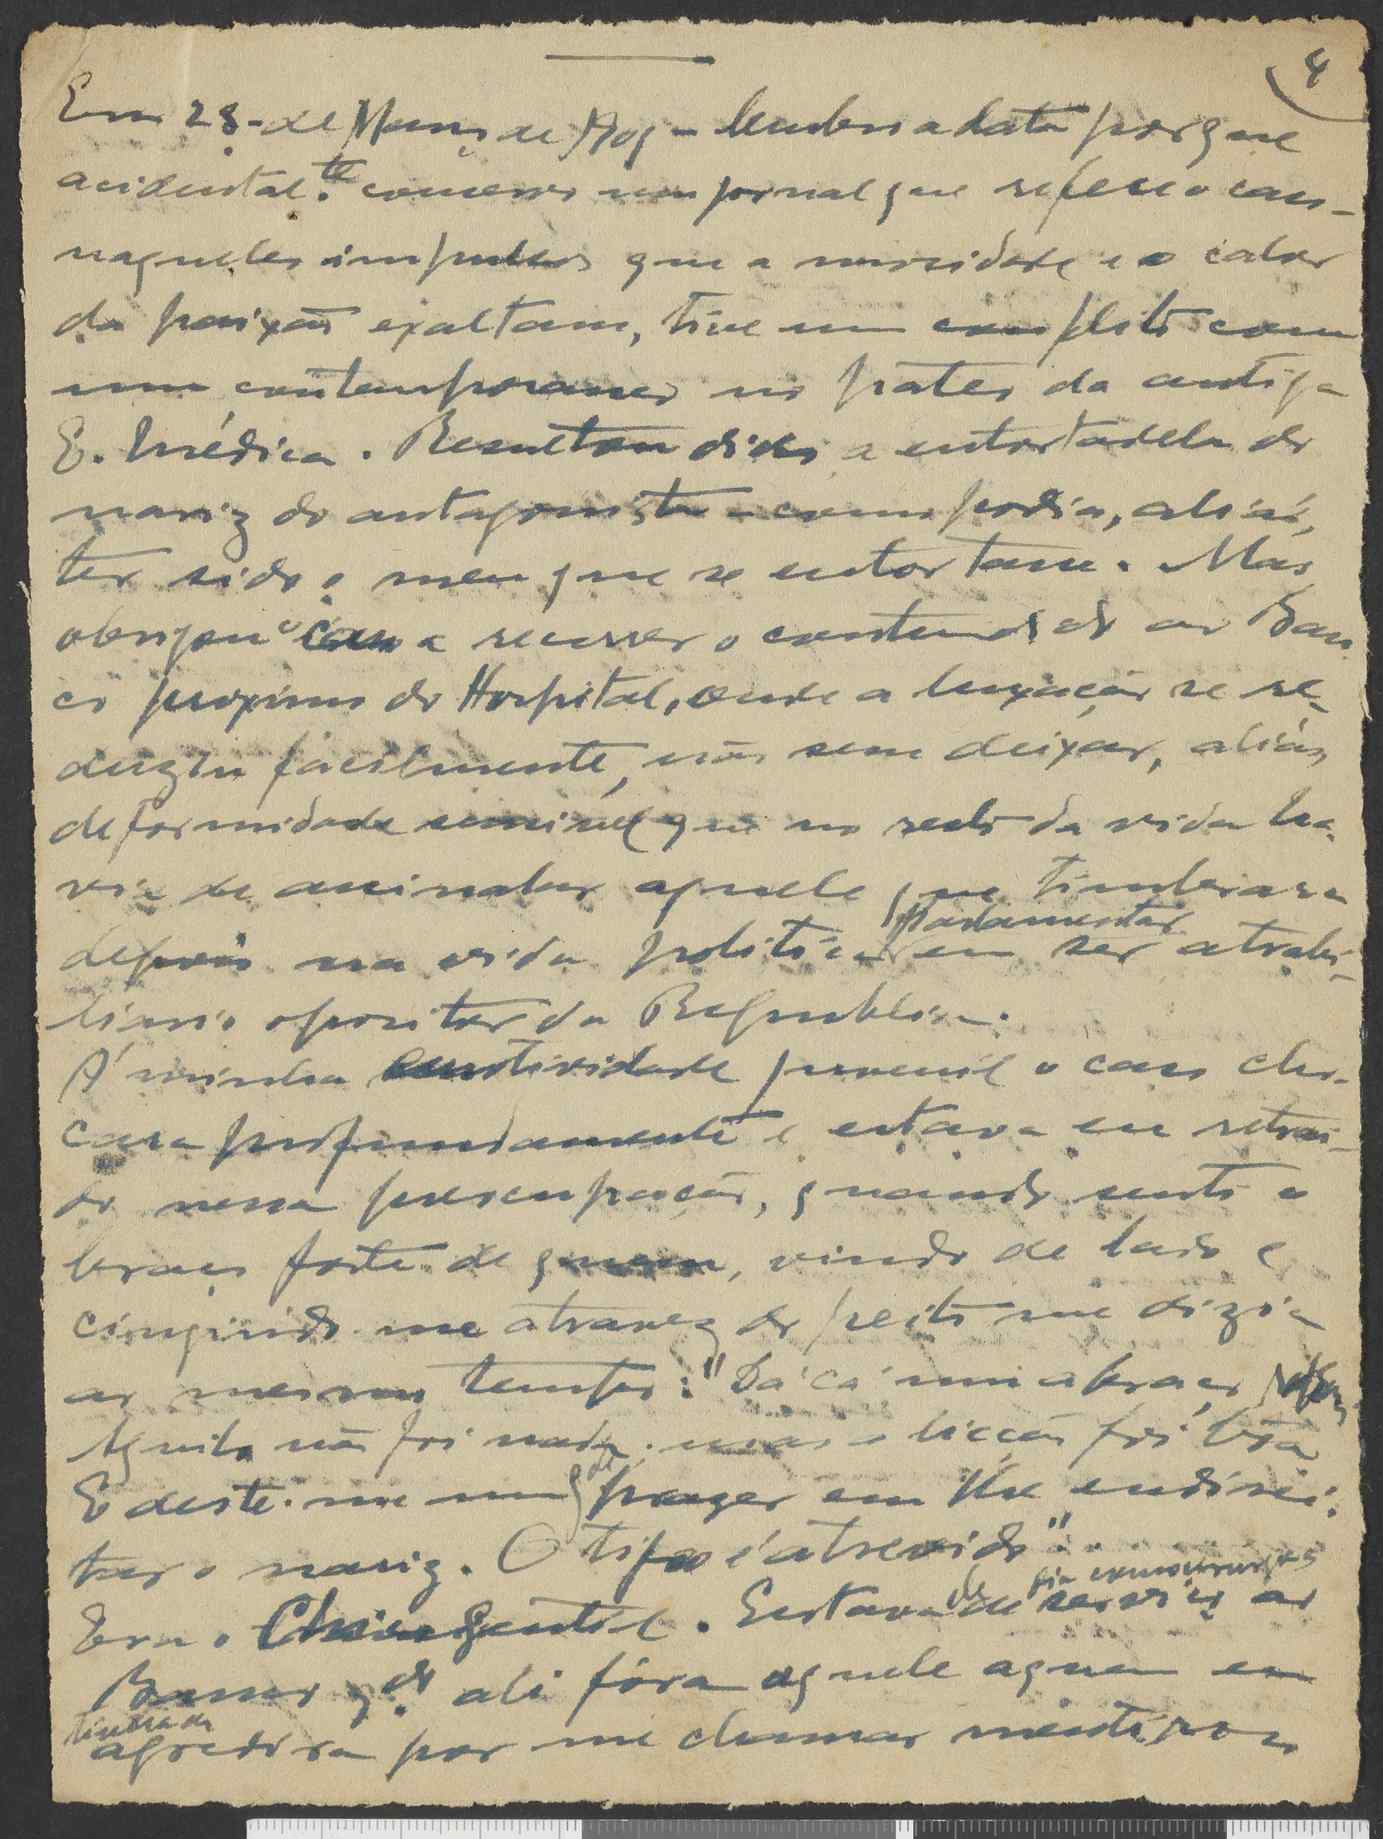 4
Em 28 - de Março de 1909 - lembro a data porque
acidental.te conservo um jornal que refere o caso -
naqueles impulsos que a mocidade e o calor
da paixão exaltam, tive um conflito com
um contemporaneo no pateo da antiga
E. Médica. Resultou disso a entortadela do
nariz do antagonista - como podia, aliás,
ter sido o meu que se entortasse. Mas
obrigou o caso a recorrer o contundido ao Ban-
co proximo do Hospital, onde a luxação se re-
duziu facilmente, não sem deixar, aliás
deformidade sensivel que no resto da vida ha-
via de assinalar aquele que timbrara
depois na vida politica parlamentar em ser atrabi-
liario opositor da Republica.
Á minha emotividade juvenil o caso cho-
cara profundamente e estava eu retrai-
do nessa preocupação, quando senti o
braço forte de quem, vindo de lado e
cingindo-me atravez do peito me dizia
ao mesmo tempo: "Dá cá um abraço
Aquilo não foi nada, mas a licção foi boa
E deste-me um gde prazer em lhe endirei-
tar o nariz. O tipo é atrevido".
Era o Chico Gentil. Estava de serviço ao
Banco q.do ali fôra aquele a quem eu
tinha
agredira por me chamar mentiroso